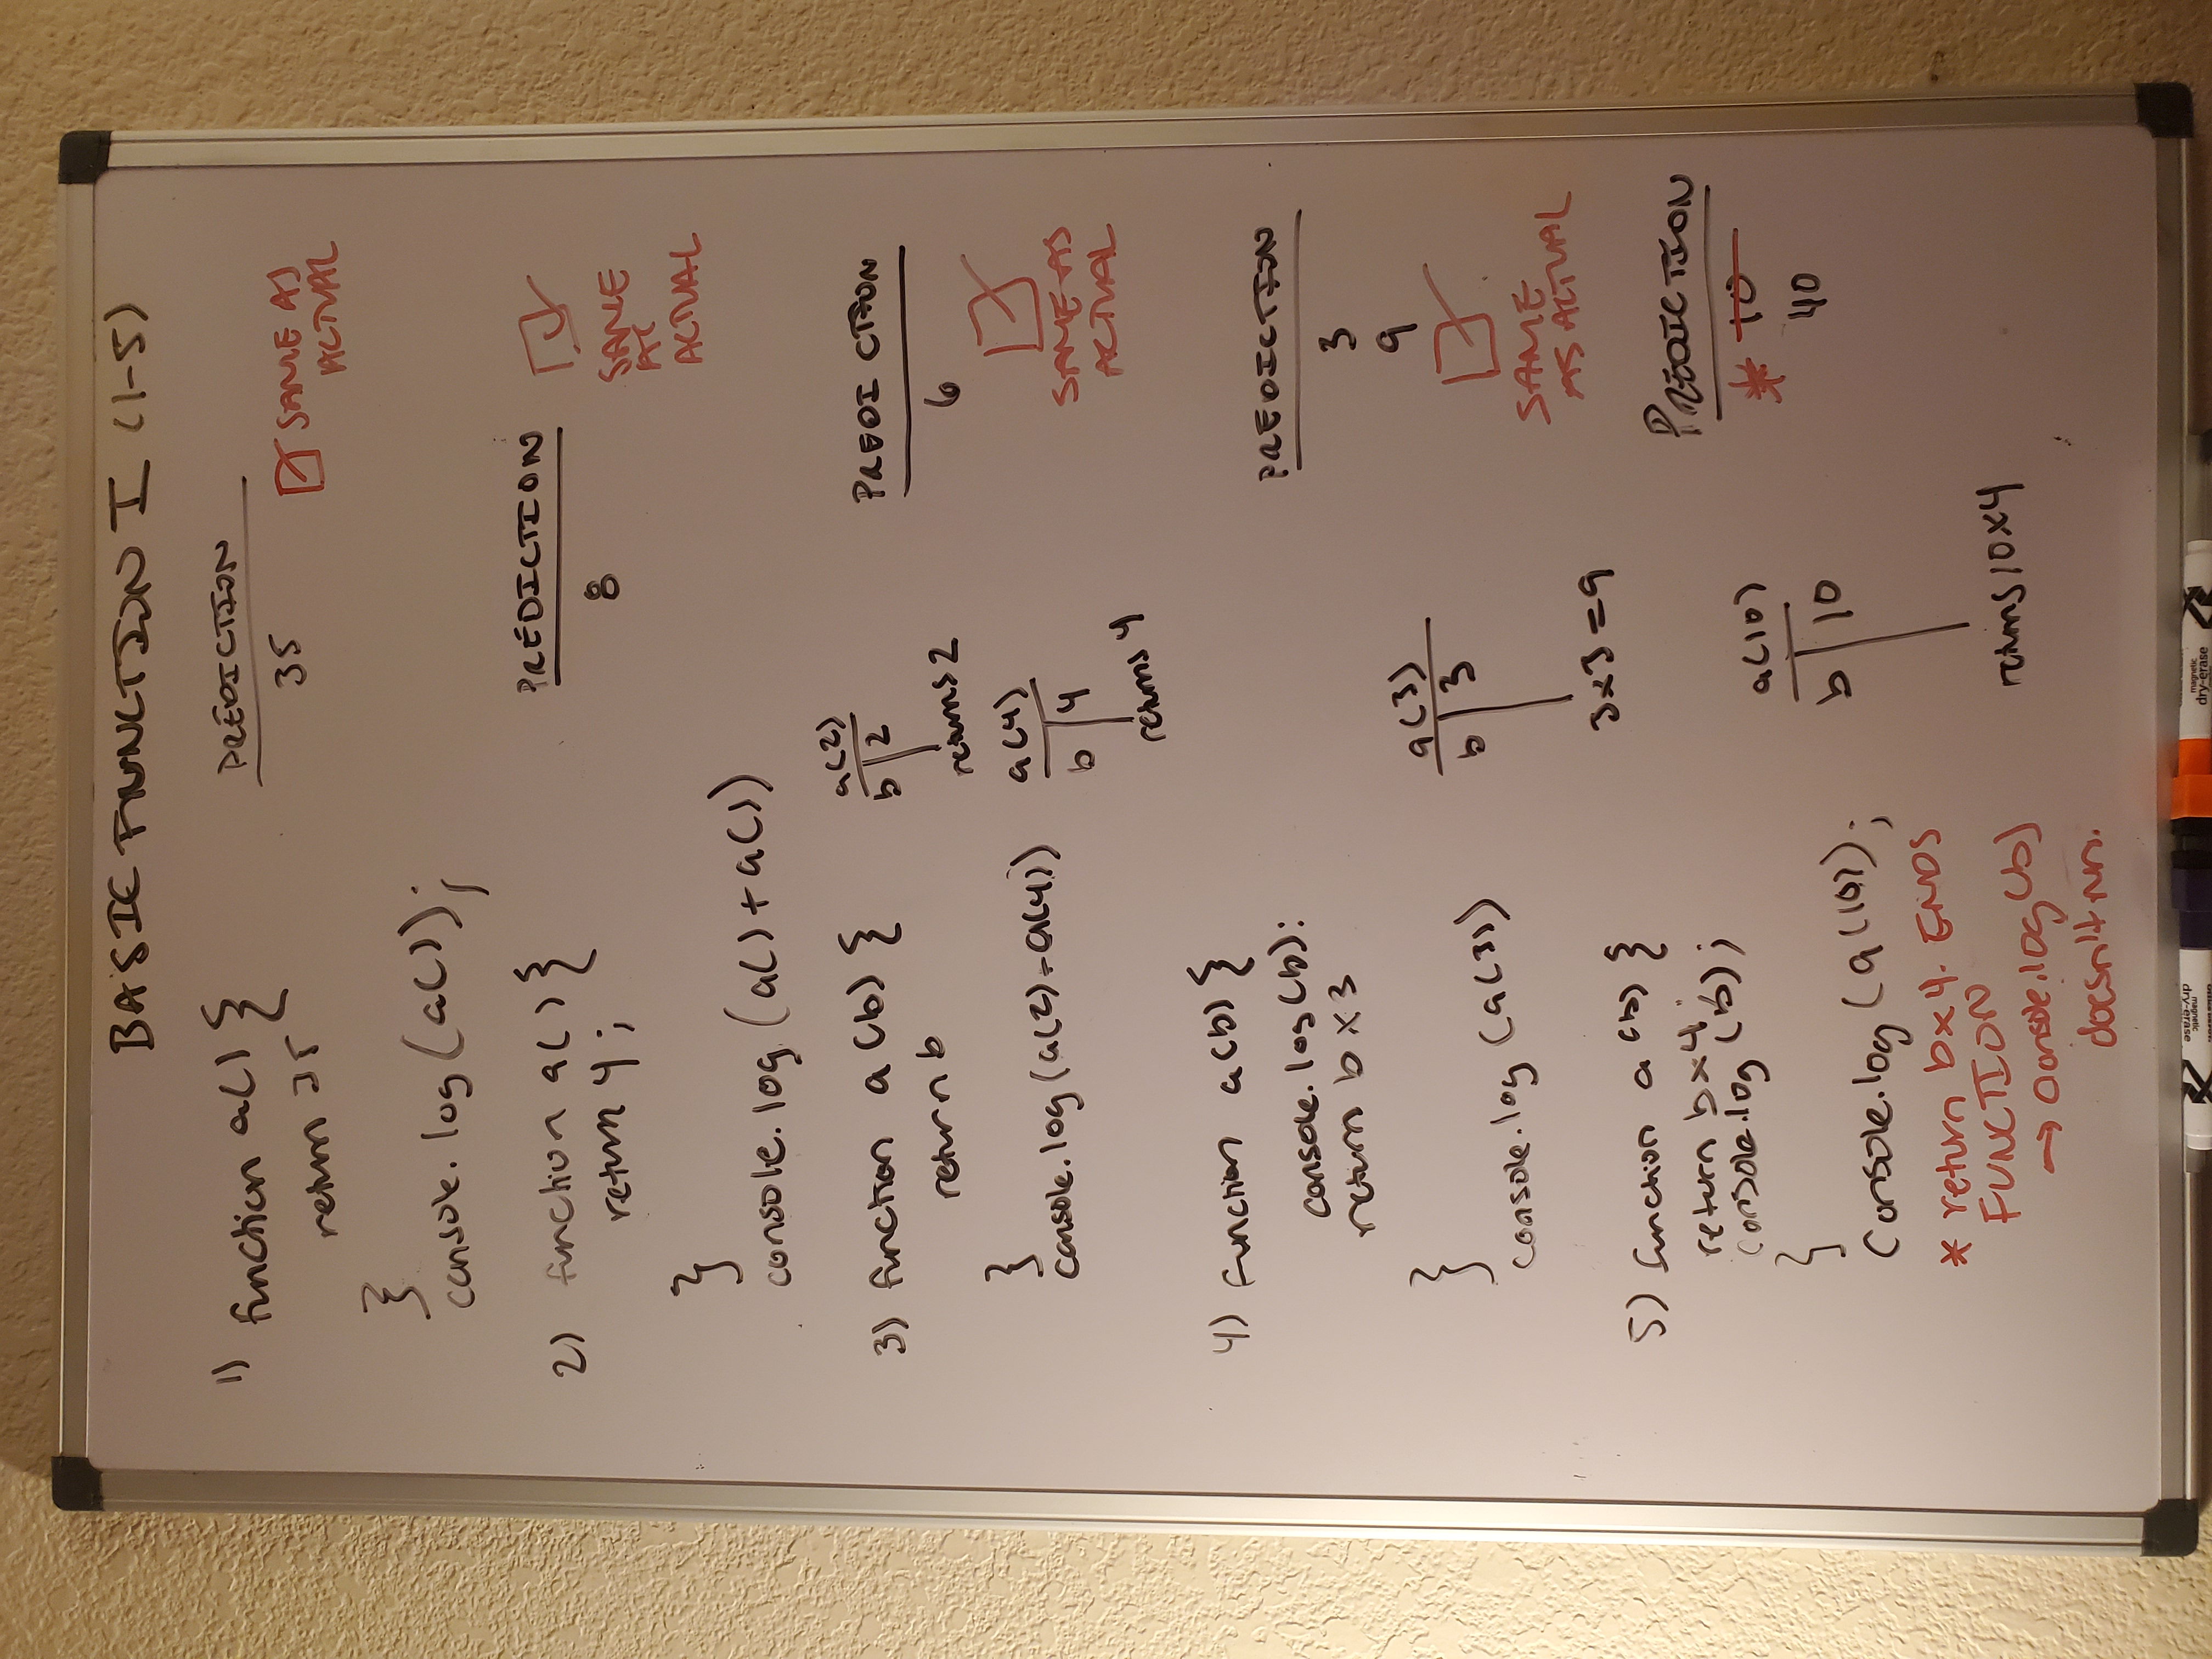 BASIC FUNCTION I (1-5)
1) function a() {
return 35
}
console.log(a());
PREDICTION
35
SAME AS
ACTUAL
2) function a() {
return 4;
}
console.log(a()+a())
PREDICTION
8
SAME
AS
ACTUAL
3) function a(b) {
return b
}
console.log(a(2)+a(4))
a(2)
b 2
returns 2
a(4)
b 4
returns 4
PREDICTION
6
SAME AS
ACTUAL
4) function a(b) {
console.log(b);
return b x 3
}
console.log(a(3))
a(3)
b 3
3x3=9
PREDICTION
3
9
SAME
AS ACTUAL
5) function a(b) {
return bx4;
console.log(b);
}
Console.log(a(10));
a(10)
b 10
returns 10x4
PREDICTION
* 10
40
* return bx4. ENDS
FUNCTION
→ console.log(b)
doesn't run.
magnetic
dry-erase
magnetic
dry-erase